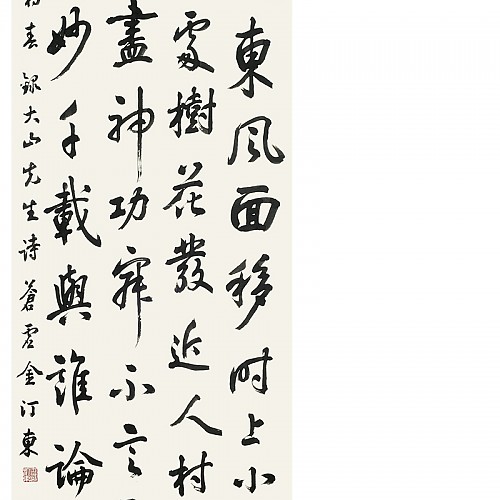 東風面移时上小
處樹花發近人村
盡神功寂不言
妙千載與誰論
春錄大山先生詩蒼金汀東